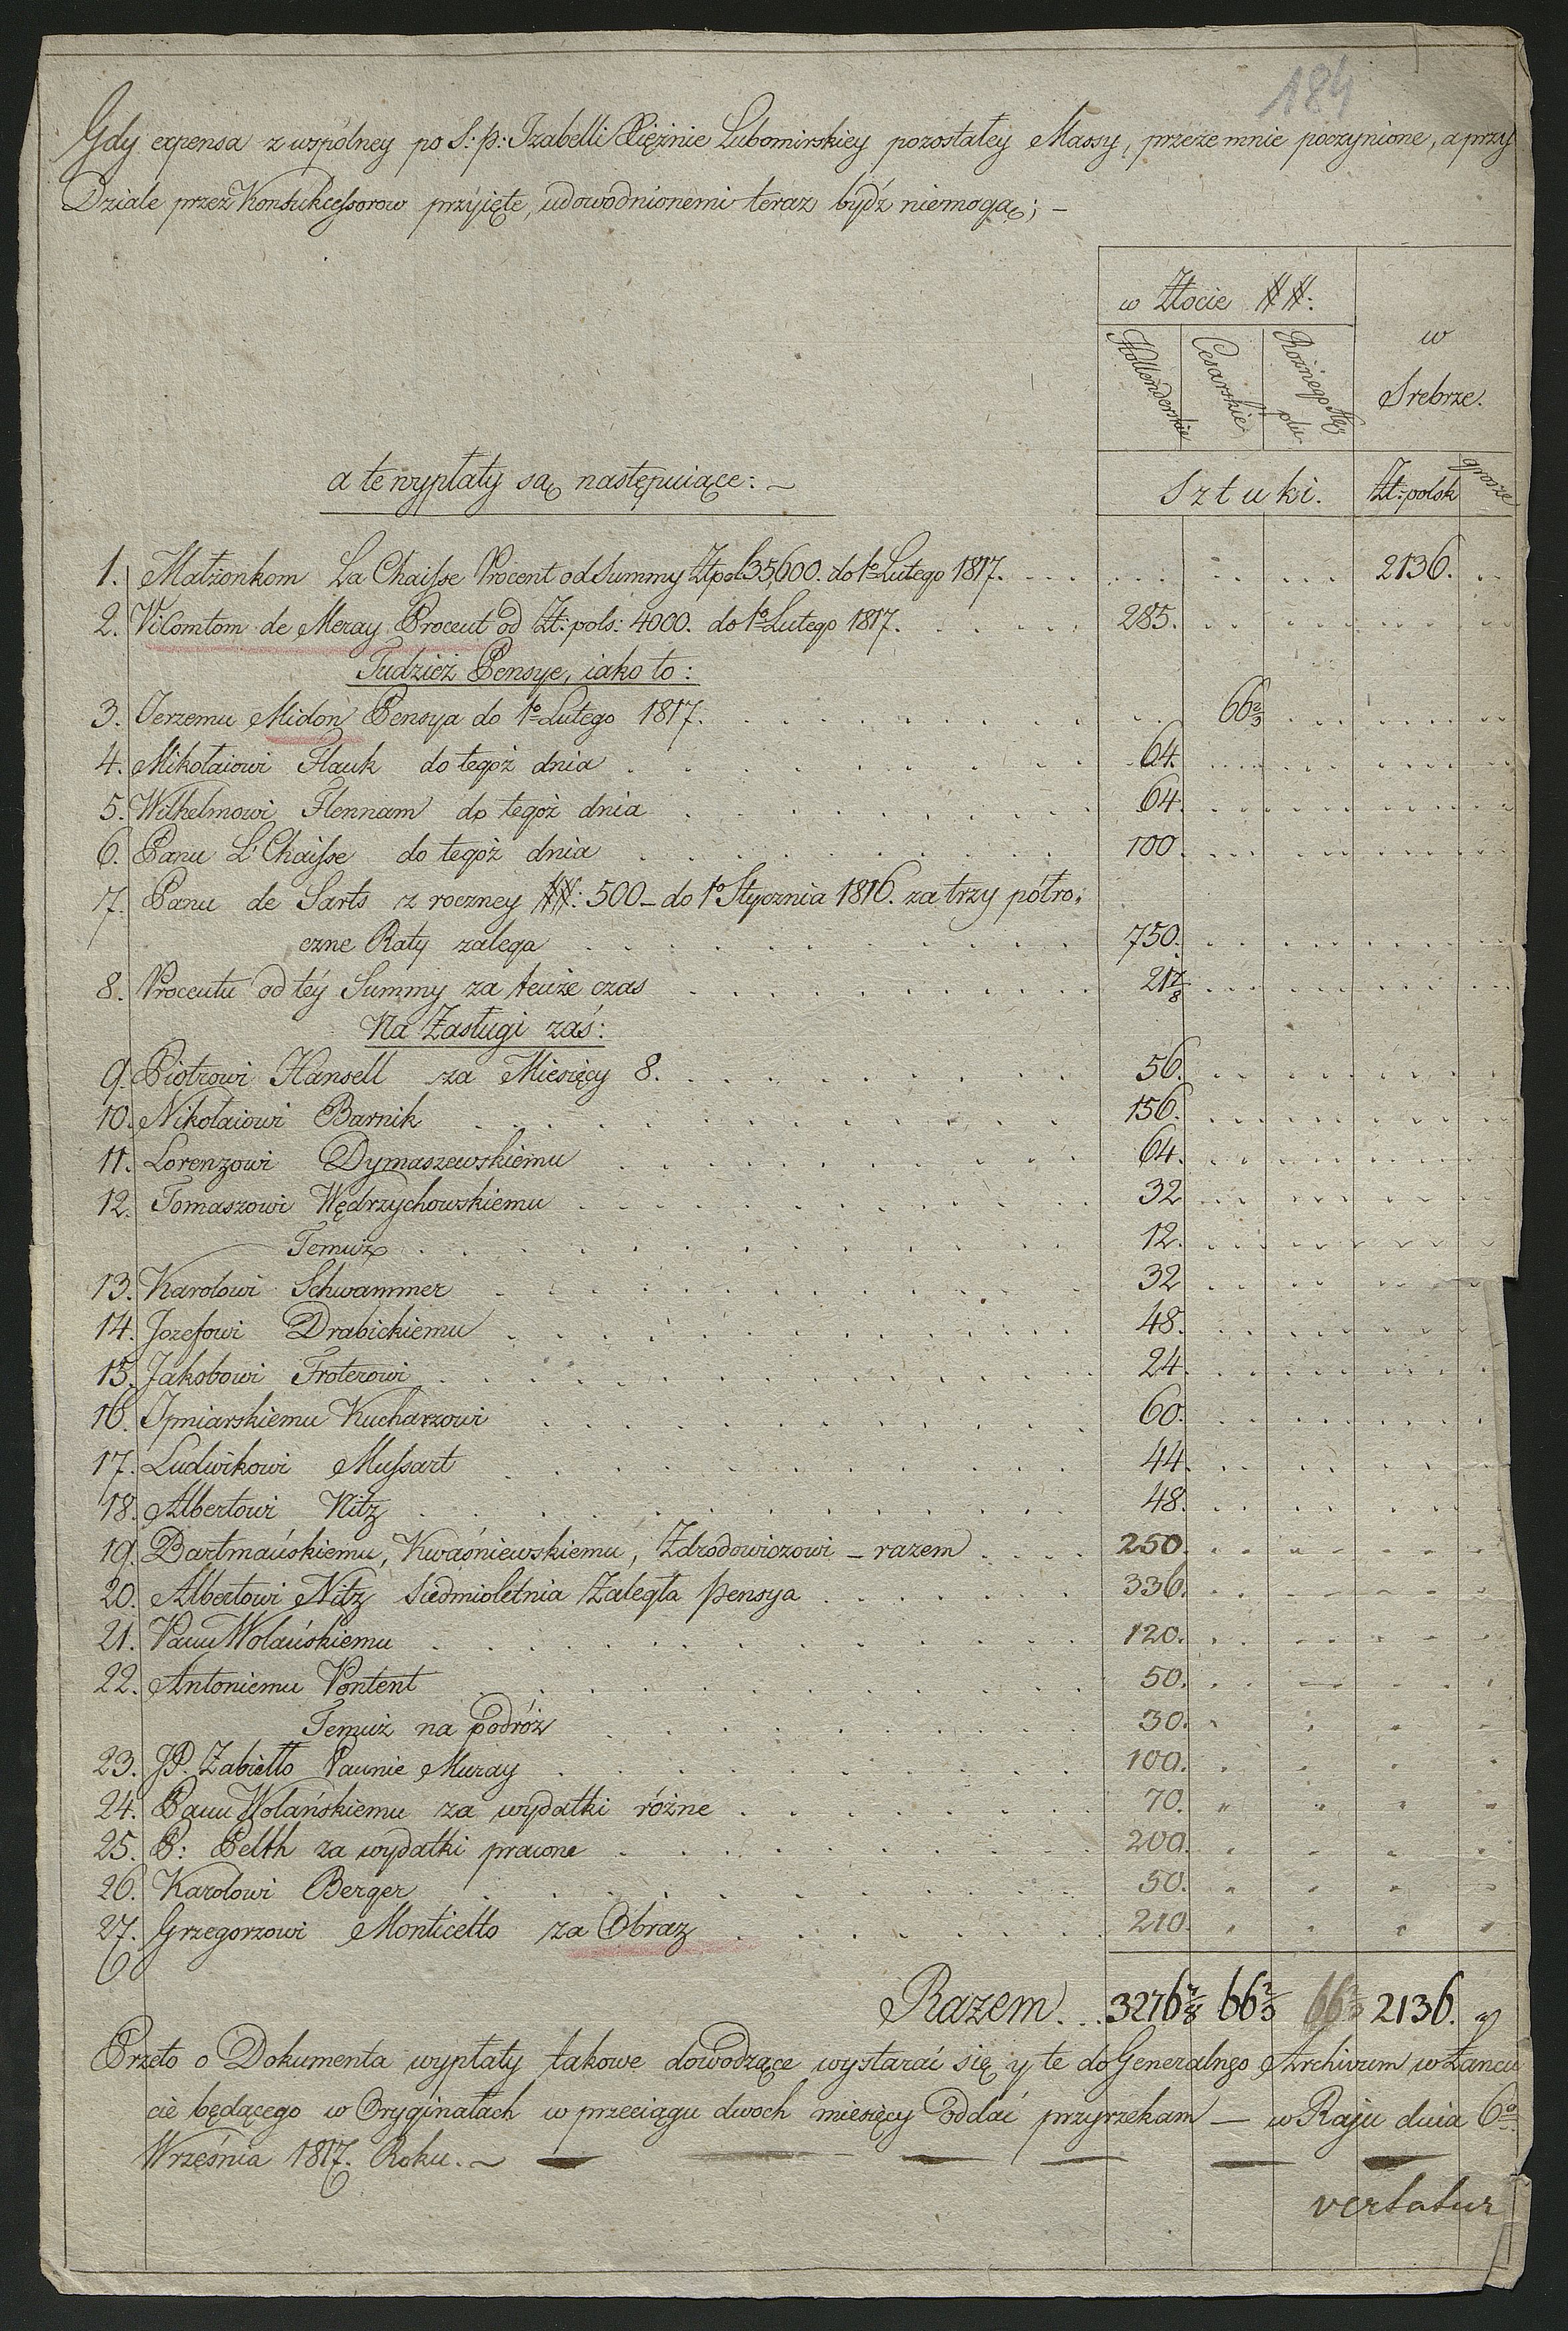 184
Gdy expensa z wspólney po S: p: Izabelli Xiężnie Lubomirskiey pozostałey Massy, przeze mnie poczynione, a przy
Dziale przez Konsukcessorow przyięte, udowodnionemi teraz bydź niemogą; –
w Złocie ##:
w Srebrze.
Hollenderskie
Cesarskie
Rożnego Stę
plu
Sztuki.
Zł: polsk
grosze
a te wypłaty są następuiące: –
1. Małżonkom La Chaisse Procent od Summy Złpol 35,600. do 1º Lutego 1817. 2136.
2. ViComtom de Meray Procent od Zł: pols: 4000. do 1º Lutego 1817. 285.
Tudzież Pensye, iako to:
3. Jerzemu Midon Pensya do 1º Lutego 1817. 66 2/3
4. Mikołaiowi Hauk do tegoż dnia 64.
5. Wilhelmowi Hennam do tegoż dnia 64.
6. Panu L'Chaisse do tegoż dnia 100.
7. Panu de Sarts z roczney ##: 500 – do 1º Stycznia 1816. za trzy półro:
czne Raty zalega 750.
8. Procentu od téy Summy za tenże czas 21 7/8
Na Zasługi zaś:
9. Piotrowi Hansell za Miesięcy 8. 56.
10. Nikołaiowi Barnik 156.
11. Lorenzowi Dymaszewskiemu 64.
12. Tomaszowi Wędrzychowskiemu 32
Temuż 12.
13. Karolowi Schwammer 32
14. Jozefowi Drabickiemu 48.
15. Jakobowi Froterowi 24.
16. Ipniarskiemu Kucharzowi 60.
17. Ludwikowi Mussart 44.
18. Albertowi Nitz 48.
19. Bartmańskiemu, Kwaśniewskiemu, Zdrodowiczowi – razem 250.
20. Albertowi Nitz siedmioletnia Zaległa pensya 336.
21. Panu Wolańskiemu 120.
22. Antoniemu Pontent 50.
Temuż na podróż 30.
23. JP. Zabiełło Pannie Muray 100.
24. Panu Wolańskiemu za wydatki różne 70.
25. P: Pelth za wydatki prawne 200.
26. Karolowi Berger 50.
27. Grzegorzowi Monticello za Obraz 210.
Razem 3276 7/8 66 2/3 66 2/3 2136.
Przeto o Dokumenta wypłaty takowe dowodzące wystarać się y te do Generalnego Archivum w Łancu
cie będącego w Oryginałach w przeciągu dwoch miesięcy oddać przyrzekam – w Raju dnia 6º
Września 1817. Roku. –
vertatur